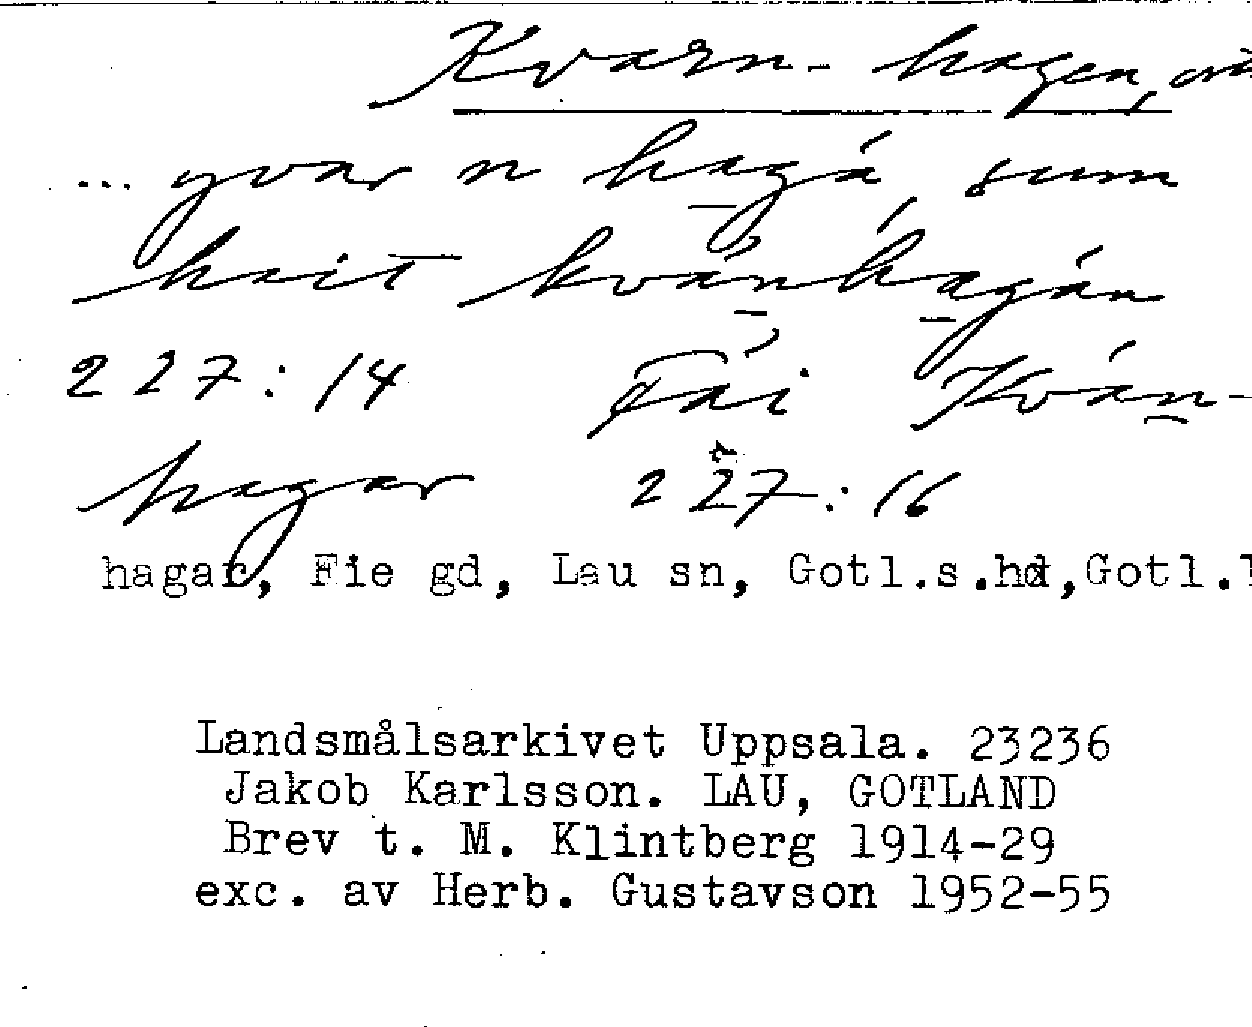 Kvarn-hagen,
... yvar n hagá sum
hait kvánhagán
227:14 Fái Kván-
hagar 227:16
hagar, Fie gd, Lau sn, Gotl.s.hd,Gotl.l
Landsmålsarkivet Uppsala. 23236
Jakob Karlsson. LAU, GOTLAND
Brev t. M. Klintberg 1914-29
exc. av Herb. Gustavson 1952-55